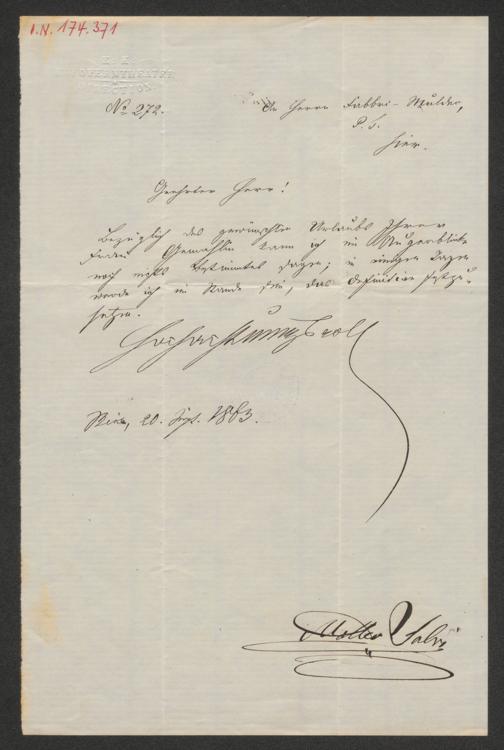 I.N. 174.371
K. K.
HOFOPERNTHEATER
DIRECTION
No 272.
An Herrn Fabbri-Mulder,
P. T.
hier.
Geehrter Herr!
Bezüglich des gewünschten Urlaubs Ihrer
Frau Gemahlin kann ich im Augenblicke
noch nichts Bestimmtes sagen; in einigen Tagen
werde ich im Stande sein, das Definitive festzu-
setzen.
Hochachtungsvoll
Wien, 20. Sept. 1863.
Matteo Salvi